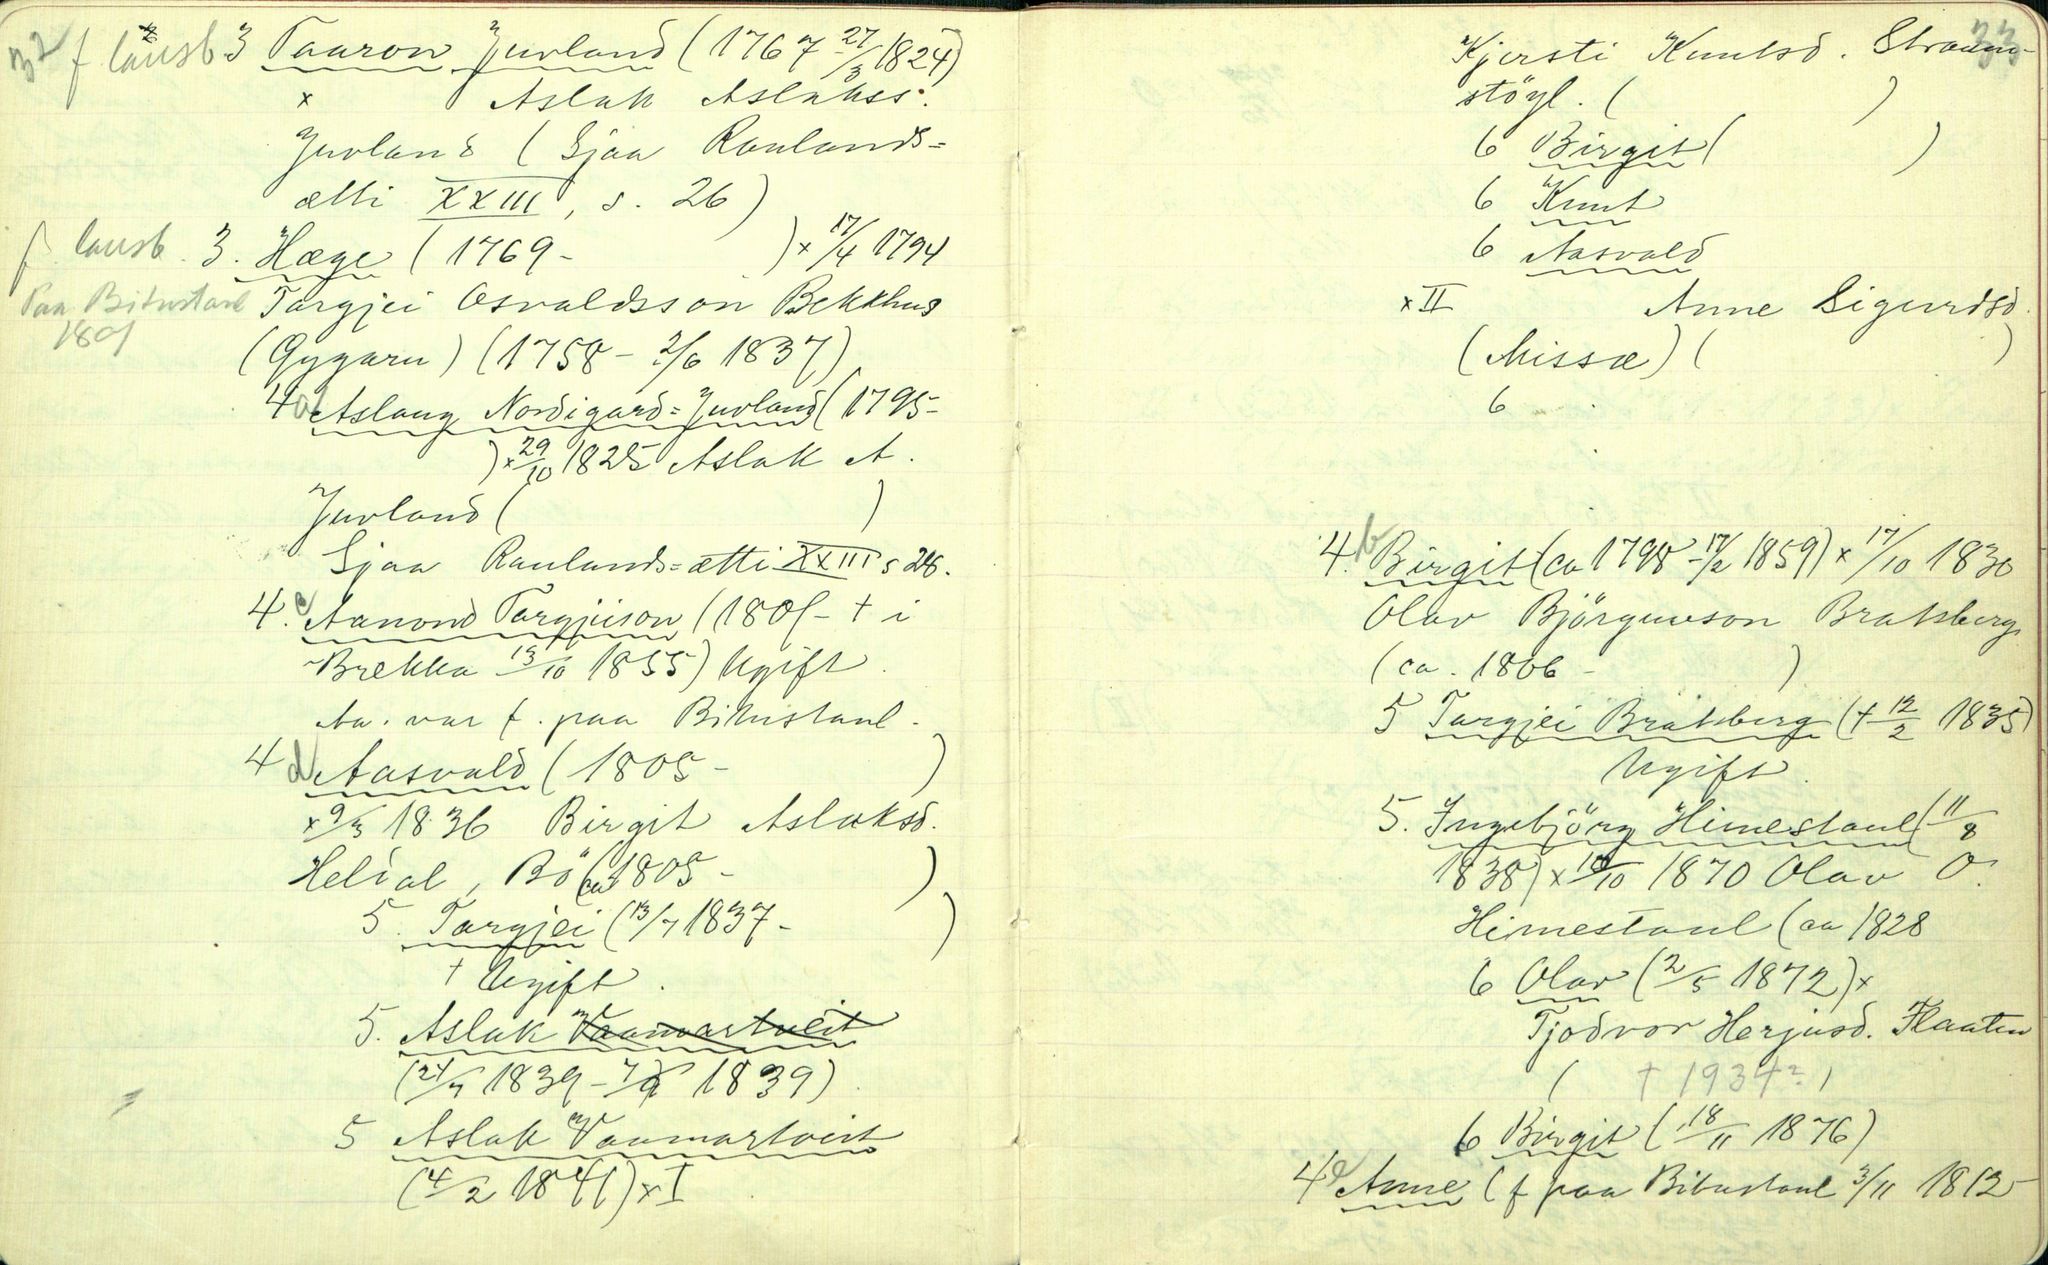 32 f lausb. 3 Taaron Jurland (1767 27/3 1824)
x Aslak Aslakss.
Jurland (Sjaa Raulands-
ætti XXIII, s. 26)
f. lausb. 3. Hæge (1769- ) x 17/4 1794
Paa Bitustaul Targjei Osvaldsson Bekkhus
1801
(Gygarn) (1758 - 2/6 1837)
4 a Aslaug Nordigard-Jurland (1795-
) x 29/10 1825 Aslak A.
Jurland ( )
Sjaa Raulands-ætti XXIII s 28.
4. c Aanond Targjeison (1801 - † i
Brekka 13/10 1855) Ugift.
Aa. var f. paa Bitustaul.
4 d Aasvald (1805 - )
x 9/3 1836 Birgit Aslaksd.
Heldal, Bö (ca 1805 - )
5. Targjei (13/7 1837 - )
† Ugift.
5. Aslak Vaamartveit
(24/7 1839 - 7/9 1839)
5 Aslak Vaamartveit
(4/2 1841) x I
33
Kjersti Knutsd. Straum-
stöyl. ( )
6 Birgit ( )
6 Knut
6 Aasvald
x II Anne Sigurdsd.
(Missæ) ( )
6
4. b Birgit (ca 1798 - 17/2 1859) x 17/10 1830
Olav Björguvson Bratsberg
(ca. 1806 - )
5 Targjei Bratsberg († 12/2 1835)
Ugift.
5. Ingebjörg Himestaul (11/8
1838) x 10/10 1870 Olav O.
Himestaul (ca 1828
6 Olav (2/5 1872) x
Tjodvor Herjusd. Flaaten
( † 1934? )
6 Birgit (18/11 1876)
4 e Anne (f paa Bitustaul 3/11 1812